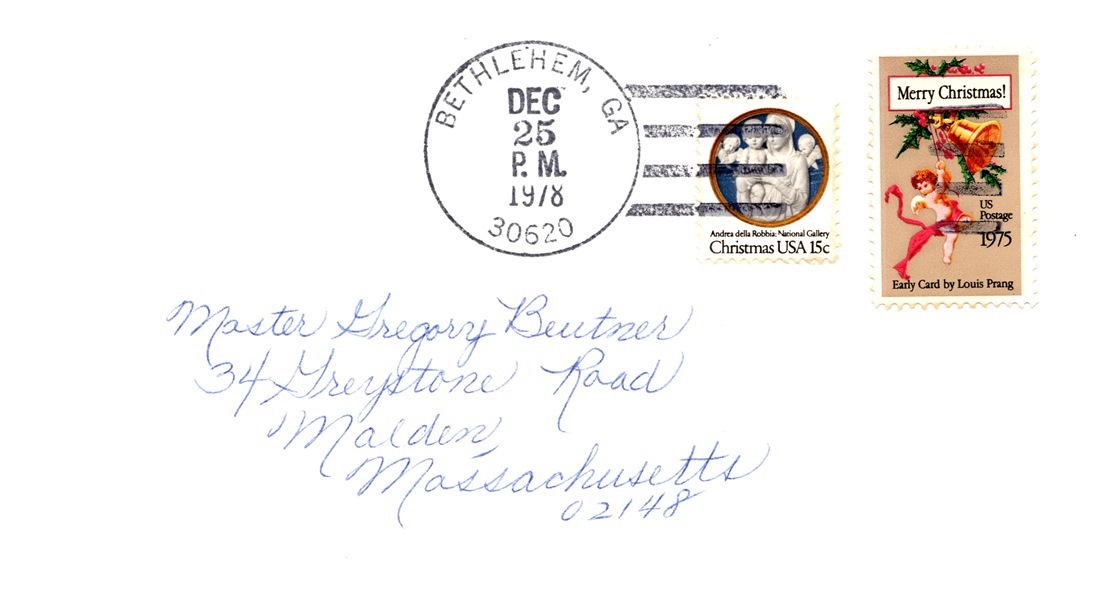 BETHLEHEM, GA
DEC
25
P. M.
1978
30620
Andrea della Robbia: National Gallery
Christmas USA 15c
Merry Christmas!
US
Postage
1975
Early Card by Louis Prang
Master Gregory Beutner
34 Greystone Road
Malden,
Massachusetts
02148